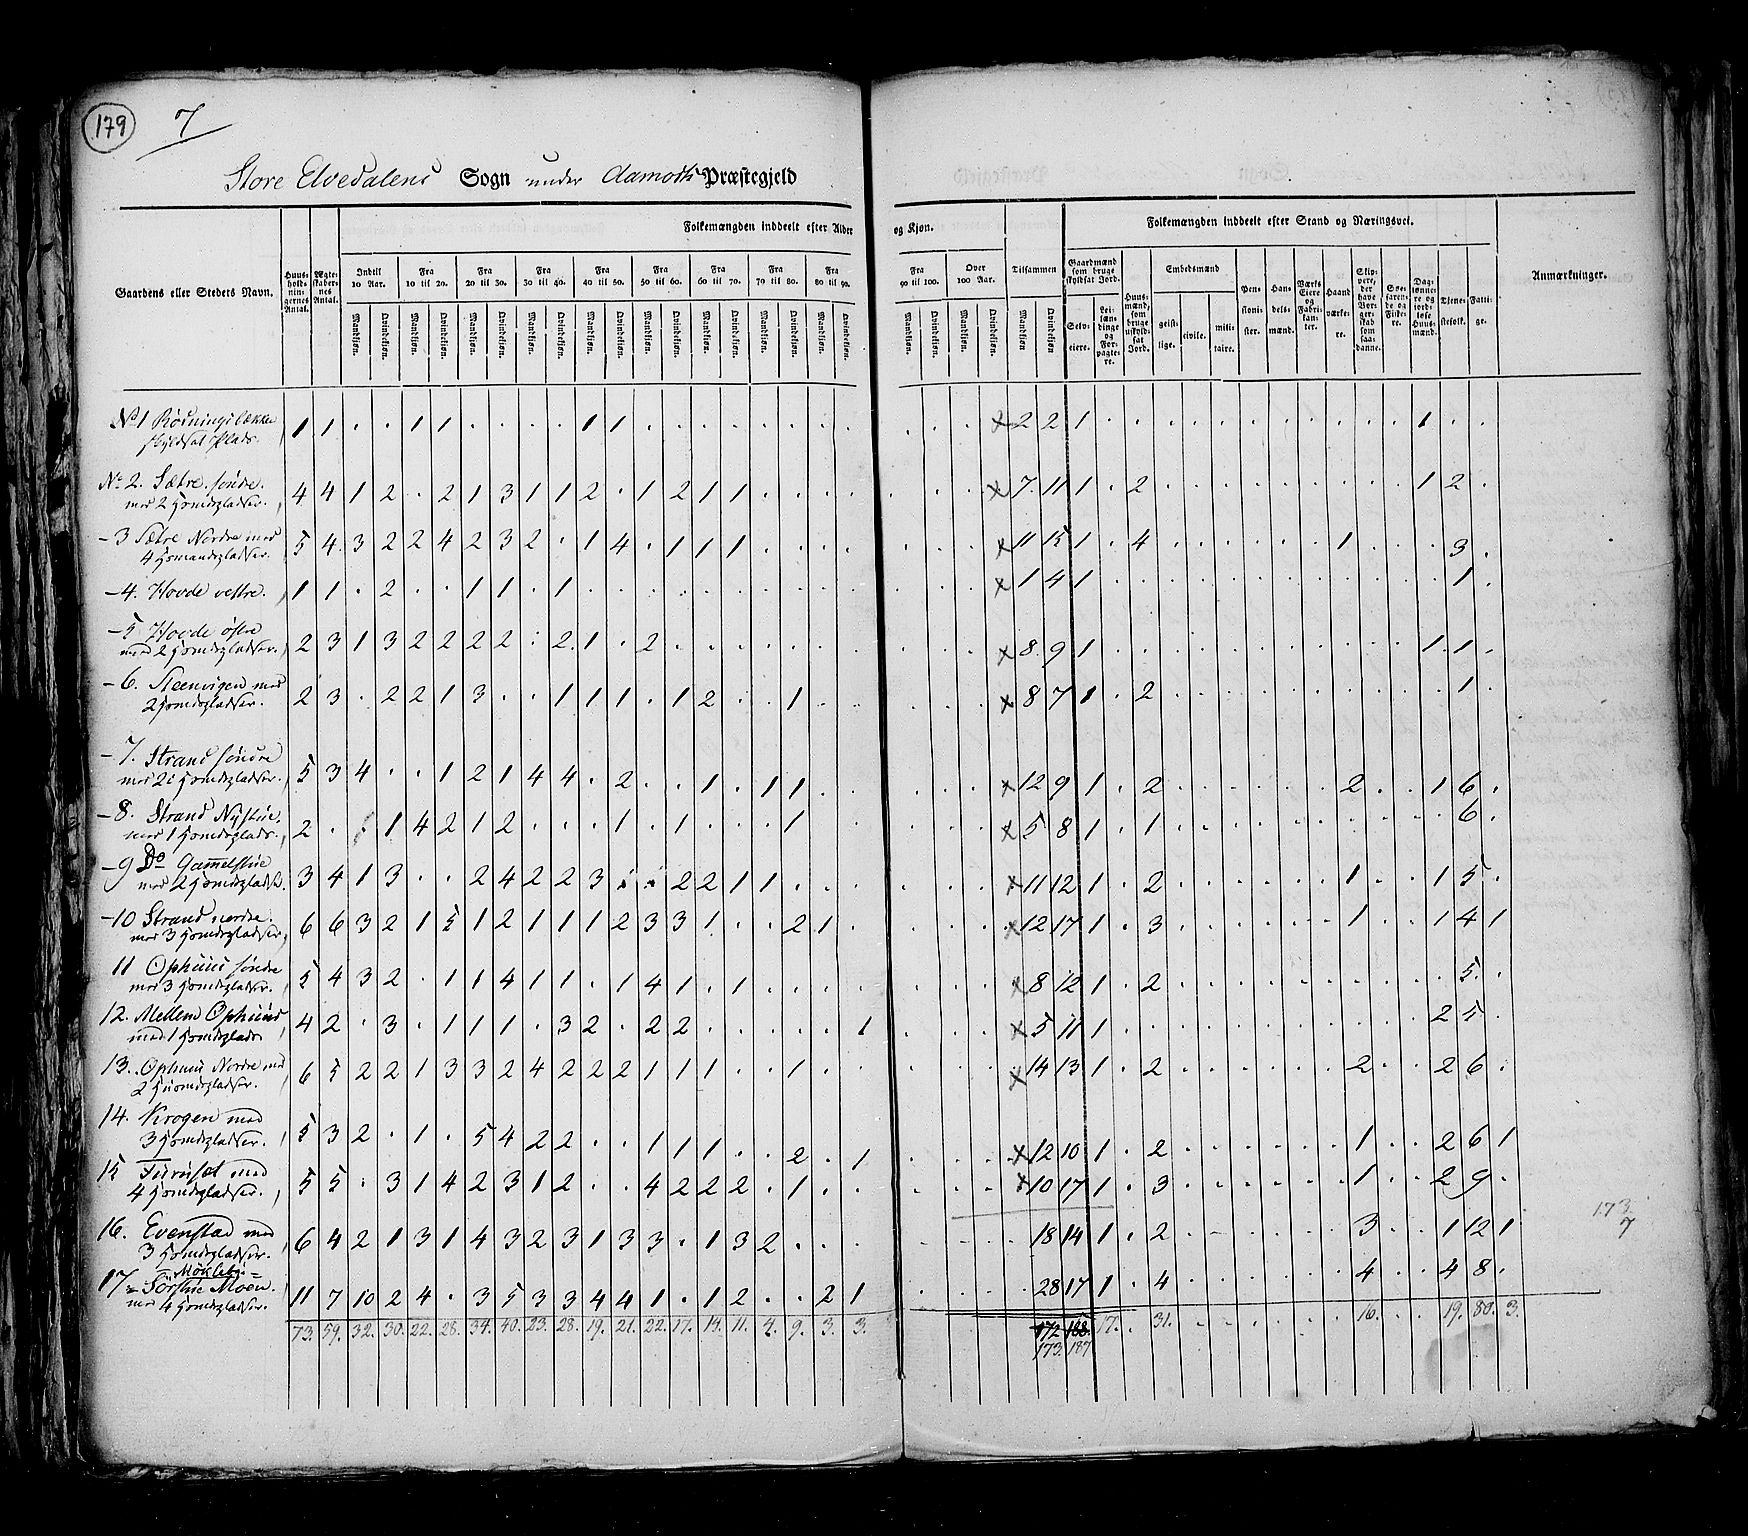 179
7
Store Elvedalens Sogn under Aamods Præstegjeld
Folkemængden inddeelt efter Alder og Kjøn.
Folkemængden inddeelt efter Stand og Næringsvei.
Gaardens eller Stedets Navn.
Huus-holdnin-gernes Antal.
Ægte-skaber-nes Antal.
Indtil 10 Aar.
Fra 10 til 20.
Fra 20 til 30.
Fra 30 til 40.
Fra 40 til 50.
Fra 50 til 60.
Fra 60 til 70.
Fra 70 til 80.
Fra 80 til 90.
Fra 90 til 100.
Over 100 Aar.
Tilsammen
Mandkjøn. Qvindekjøn.
Gaardmænd som bruge skyldsat Jord.
Selv-eiere.
Lei-læn-dinge og For-pagte-re.
Huus-mænd, som bruge uskyld-sat Jord.
Embedsmænd
geist-lige. civile. mili-taire.
Pen-sioni-ster.
Han-dels-mænd.
Værks Eiere og Fabri-kanter.
Haand værke-re.
Skip-pere, der have Bor-ger-skab som saa-danne.
Søe-faren-de og Fiske-re.
Dag-lønne-re og jord-løse Huus-mænd.
Tjene-stefolk.
Fatti-ge.
Anmærkninger.
No 1 skyldsat Plads. 1 1 . . 1 1 . . . . 1 1 . . . . . . . . . . . . x 2 2 1 . . . . . . . . . . . 1 . .
No 2. Sætre søndre. med 2 Huusmdspladser. 4 4 1 2 . 2 1 3 1 1 2 . 1 2 1 1 . . . . . . . x 7. 11 1 . 2 . . . . . . . . . 1 2 .
- 3 Sætre Nordre med 4 Huusmandspladser. 5 4 3 2 2 4 2 3 2 . 1 4 . 1 1 1 . . . . . . . x 11 15 1 . 4 . . . . . . 1 . . . 3 .
- 4. Hovde vestre. 1 1 . 2 . . 1 1 . 1 . . . . . . . . . . . . . x 1 4 1 . . . . . . . . . . . . 1 .
- 5 Hovde østre med 2 Huusmdspladser. 2 3 1 3 2 2 2 2 . 2. 1 . 2 . . . . . . . . . . x 8. 9 1 . . . . . . . . . . . 1. 1 .
- 6. Steenvigen med 2 Huusmdspladser. 2 3 . 2 2 1 3 . . 1 1 1 . 1 2 . . 1 . . . . . x 8 7 1 . 2 . . . . . . . . . . 1 .
- 7. Strand søndre med 2 Huusmdspladser. 5 3 4 . . 1 2 1 4 4 . 2 . . 1 . 1 1 . . . . . x 12 9 1 . 2 . . . . . . 2 . . 1 6 .
- 8. Strand Nystue. med 1 Huusmdsplads. 2 . . 1 4 2 1 2 . . . 1 . 1 . . . 1 . . . . . x 5 8 1 . 1 . . . . . . . . . . 6 .
- 9 Do Gammelstue med 2 Huusmdspladser. 3 4 1 3 . . 2 4 2 2 3 . . 2 2 1 1 . . . . . . x 11 12 1 . 2 . . . . . . 1 . . 1 5 .
- 10 Strand nordre. med 3 Huusmdspladser. 6 6 3 2 1 5 1 2 1 1 1 2 3 3 1 . . 2 1 . . . . x 12 17 1 . 3 . . . . . . 1 . . 1 4 1
11 Ophuus søndre med 3 Huusmdspladser. 5 4 3 2 . 1 1 4 1 1 . 1 4 1 . 1 . . . . . . . x 8 12 1 . 2 . . . . . . . . . . 5. .
12. Mellem Ophuus med 1 Huusmdsplads 4 2 . 3 . 1 1 1 . 3 2 . 2 2 . . . . . 1 . . . x 5 11 1 . . . . . . . . . . . 2 5 .
13. Ophuus Nordre med 2 Huusmdspladser. 6 5 2 2 1 3 3 2 4 2 2 2 1 1 1 . . 1 . . . . . x 14 13 1 . 2 . . . . . . 2 . . 2 6 .
14. Krogen med 3 Huusmdspladser. 5 3 2 . 1 . 5 4 2 2 . . 1 1 1 . . 2 . 1 . . . x 12 10 1 . 2 . . . . . . 1 . . 2 6 1
15 Furuset med 4 Huusmdspladser. 5 5 . 3 1 4 2 3 1 2 . . 4 2 2 2 . 1 . . . . . x 10 17 1 . 3 . . . . . . 1 . . 2 9 .
16. Evenstad med 3 Huusmdspladser. 6 4 2 1 3 1 4 3 2 3 1 3 3 . 1 3 2 . . . . . . 18 14 1 . 2 . . . . . . 3 . . 1 12 1
173
7
17 = Møklebye = Sørstue Moen. med 4 Huusmdspladser. 11 7 10 2 4 . 3 5 3 3 4 4 1 . 1 2 . . 2 1 . . . . 28 17 1 . 4 . . . . . . 4 . . 4 8 .
73 59. 32. 30. 22. 28. 34. 40. 23. 28. 19. 21. 22. 17. 14. 11. 4. 9. 3. 3. 172 188. 17. . 31. . . . . . . 16. . . 19. 80. 3.
173. 187